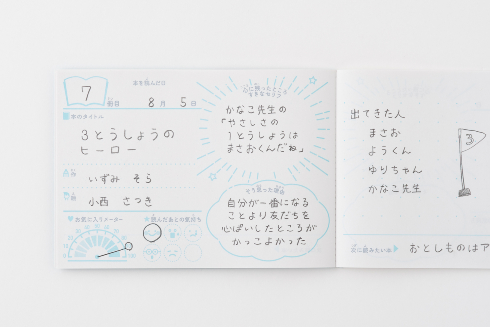 7
冊目
本を読んだ日
8月 5日
本のタイトル
3とうしょうの
ヒーロー
いずみ そら
小西 さつき
お気に入りメーター
読んだあとの気持ち
心に残ったところ
かなこ先生の
「やさしさの
1とうしょうは
まさおくんだね」
そう思った理由
自分が一番になる
ことより友だちを
心ぱいしたところが
かっこよかった
出てきた人
まさお
ようくん
ゆりちゃん
かなこ先生
3
次に読みたい本
おとしものはア